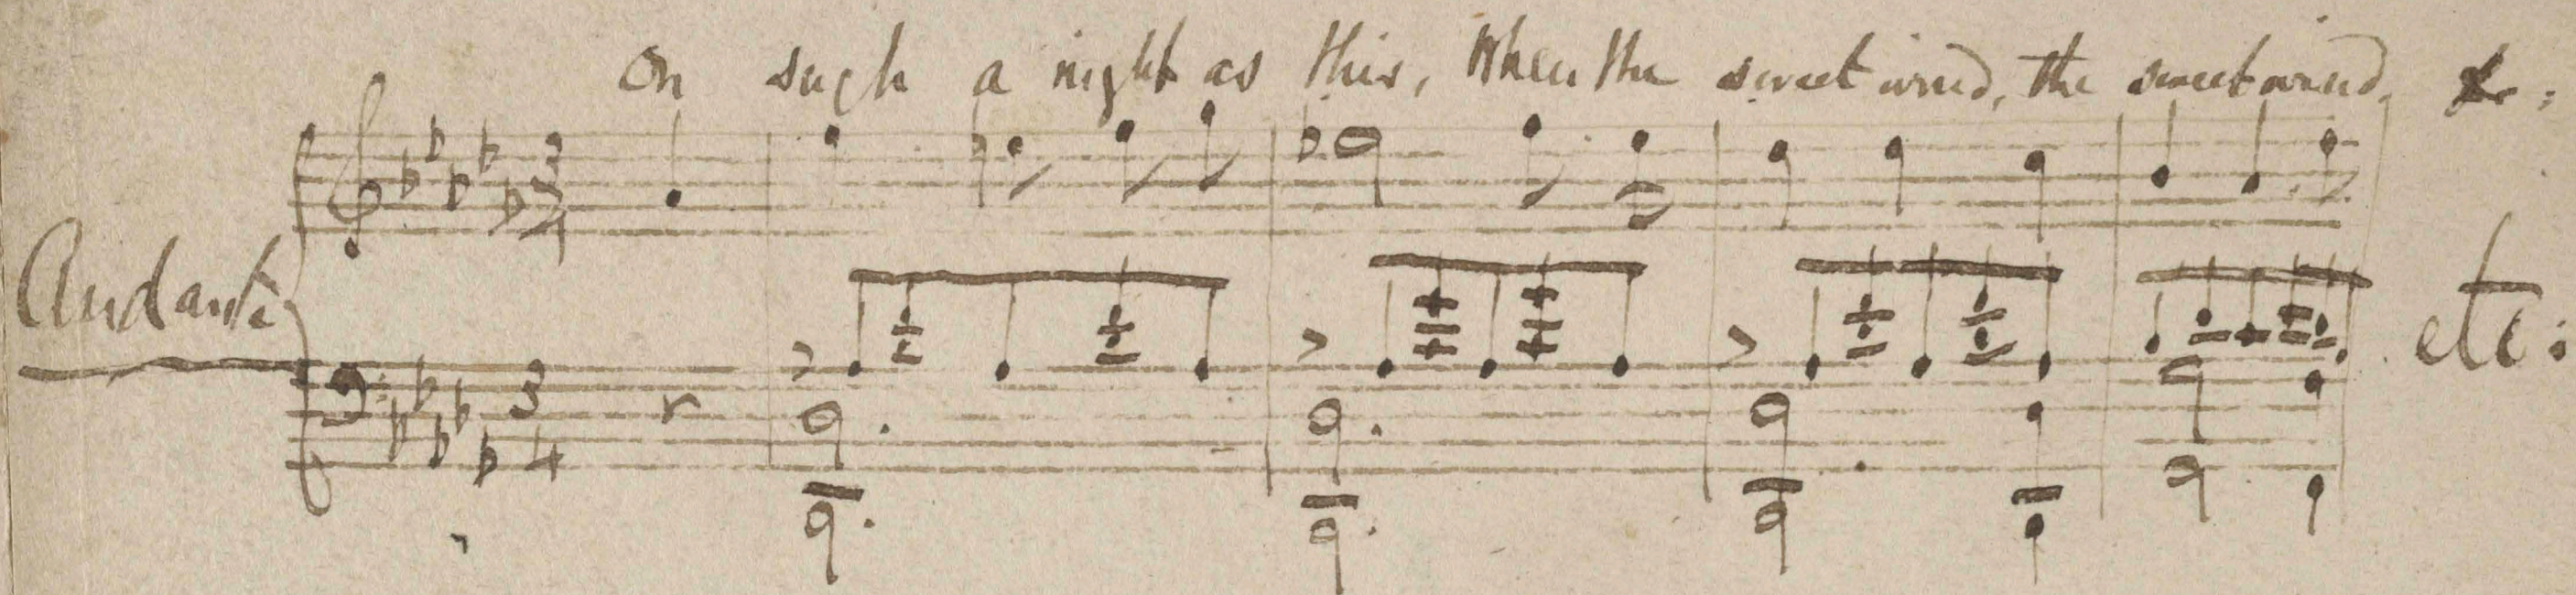 On such a night as this, When the sweet wind, the sweet wind, &c;
Andante
3
4
3
4
etc: